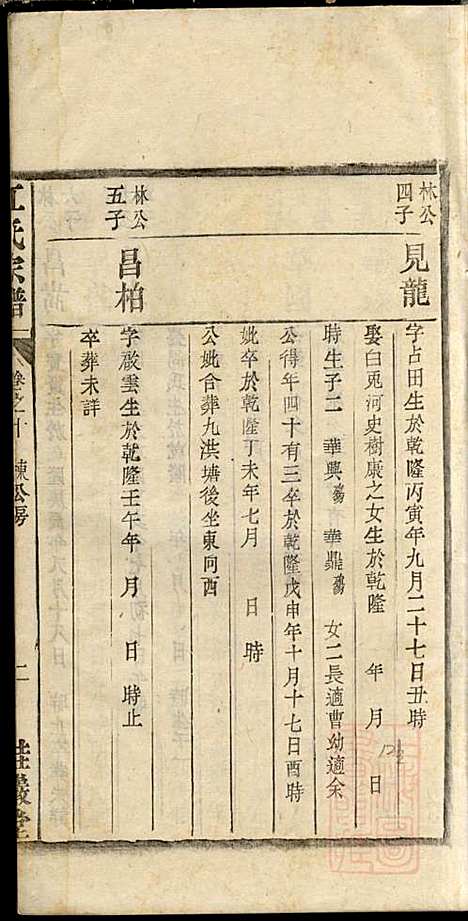 林公
四子
見龍
字占田生於乾隆丙寅年九月二十七日丑時
娶白兎河史樹康之女生於乾隆 年 月 日
時生子二 華興殤 華鼎殤 女二長適曹幼適余
公得年四十有三卒於乾隆戊申年十月十七日酉時
妣卒於乾隆丁未年七月 日 時
公妣合葬九洪塘後坐東向西
林公
五子
昌柏
字啟雲生於乾隆壬午年 月 日 時止
卒葬未詳
江氏宗譜
卷之十 棟公房 二